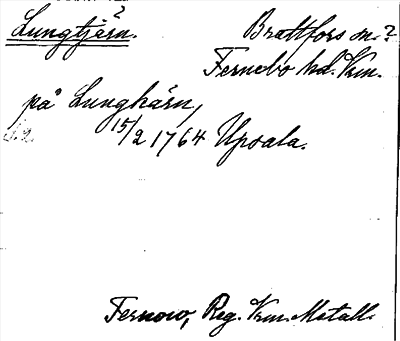 Lungtjärn. Brattfors sn.?
Fernebo hd. Vrm.
på Lunghärn,
15/2 1764 Upsala.
Fernow, Reg. Vrm. Metall.